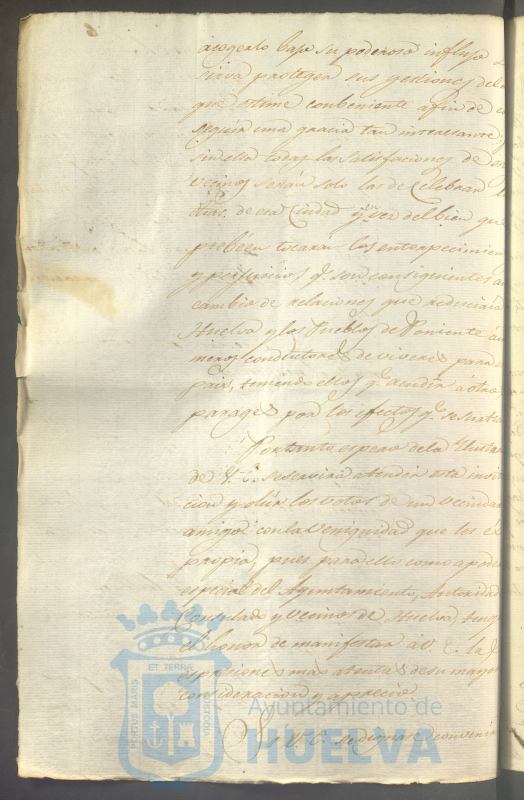 acogerlo bajo su poderoso influjo
sirva proteger sus gestiones del
que estime conbeniente afin de
seguir una gracia tan interesante
sin ella todas las satisfacciones de
vecinos serán solo las de celebrar
de esa Ciudad y en vez del bien que
preveen tocarán los entorpecimien
y perjuicios q.e son consiguientes al
cambio de relaciones que reduciría
Huelva y los Pueblos de Poniente á
meros conductores de viveres para
pais, teniendo ellos q.e acudir a otros
parages por los efectos q.e
Por tanto espero de la
de V. E. se servirá atender esta invi
cion y oir los votos de un vecindar
amigo con la Veniguidad que les es
propia, pues para ello como apode
especial del Ayuntamiento, Autoridad
Consulado y vecinos de Huelva, tengo
el honor de manifestar á V. E. la
espresiones mas atentas de su mayor
consideracion y aprecio
Si V. E. se dignase convenir
PORTUS MARIS
ET TERRA
CUSTODIA
Ayuntamiento de
HUELVA